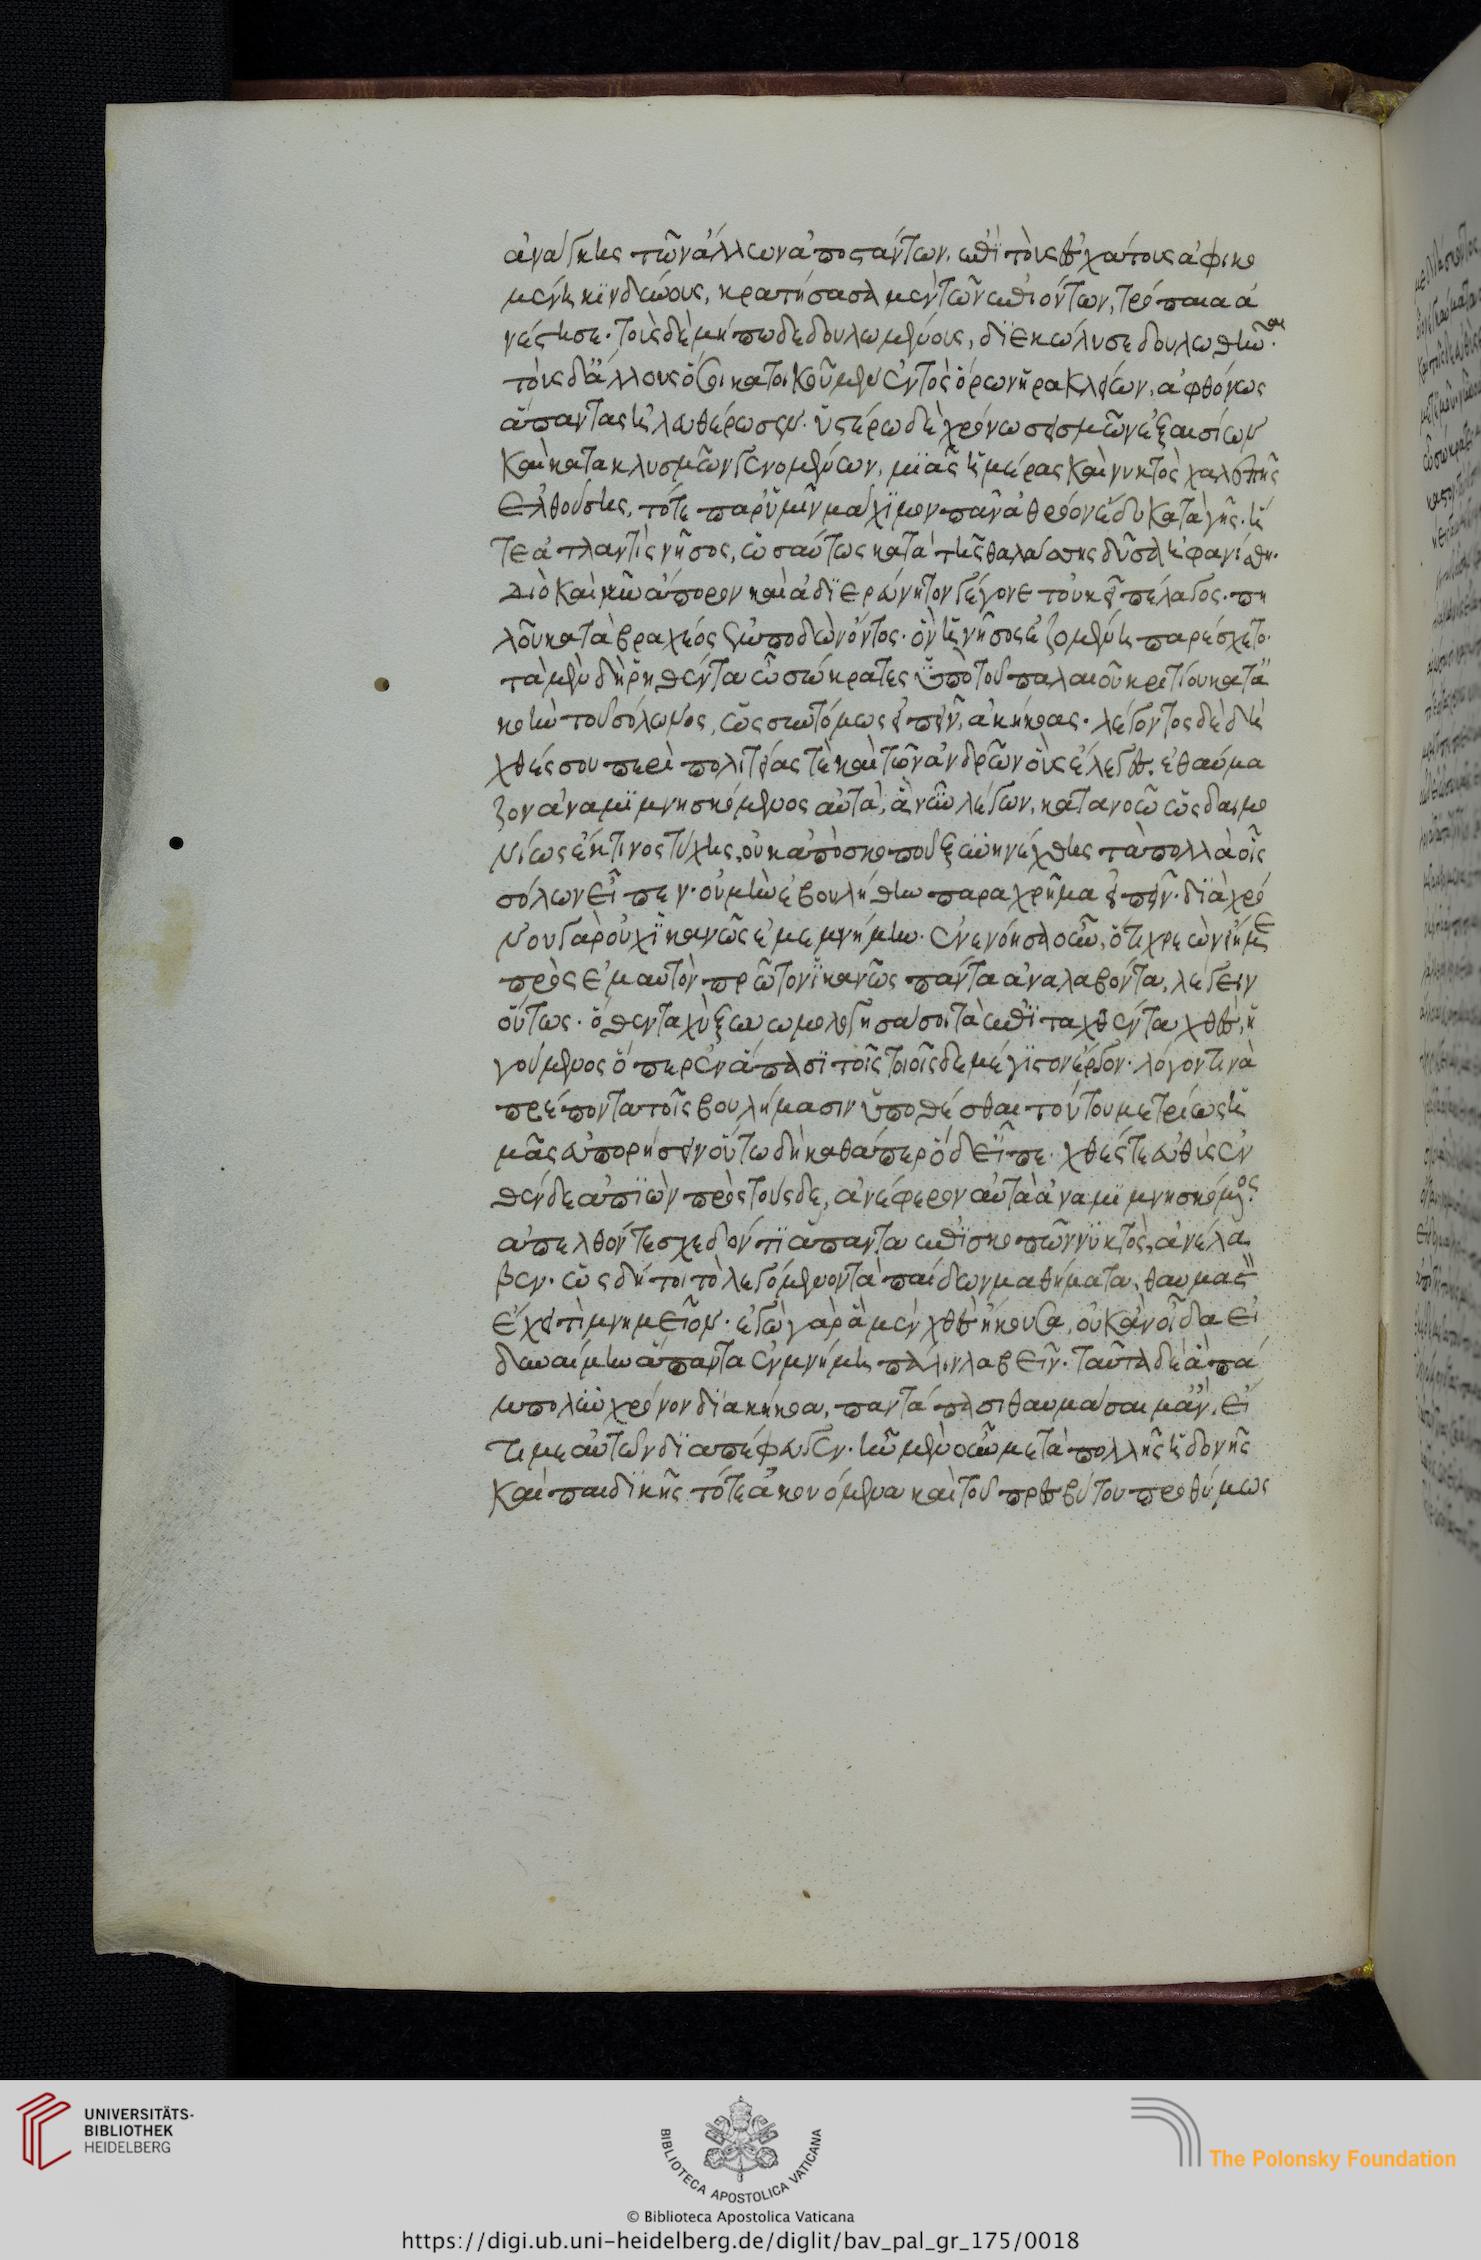 ἀνάγκης τῶν ἄλλων ἀποστάντων, ἐπὶ τοὺς ἐσχάτους ἀφικο
μένη κινδύνους, κρατήσασα μὲν τῶν ἐπιόντων, τρόπαια ἀ
νέστησε· τοὺς δὲ μήπω δεδουλωμένους, διεκώλυσε δουλωθῆναι·
τοὺς δ' ἄλλους ὅσοι κατοικοῦμεν ἐντὸς ὅρων ἡρακλείων, ἀφθόνως
ἅπαντας ἠλευθέρωσεν· ὑστέρω δὲ χρόνω σεισμῶν ἐξαισίων
καὶ κατακλυσμῶν γενομένων, μιᾶς ἡμέρας καὶ νυκτὸς χαλεπῆς
ἐλθούσης, τότε παρ' ὑμῖν μάχιμον πᾶν ἀθρόον ἔδυ κατὰ γῆς· ἥ
τε ἀτλαντὶς νῆσος, ὡσαύτως κατὰ τῆς θαλάσσης δῦσα ἠφανίσθη·
διὸ καὶ νῦν ἄπορον καὶ ἀδιερεύνητον γέγονε τοὐκεῖ πέλαγος· πη
λοῦ κατὰ βραχέος ἐμποδὼν ὄντος· ὃν ἡ νῆσος ἱζομένη παρέσχετο·
τὰ μὲν δὴ ῥηθέντα ὦ σώκρατες ὑπὸ τοῦ παλαιοῦ κριτίου κατ' ἀ
κοὴν τοῦ σόλωνος, ὡς συντόμως εἰπεῖν, ἀκήκοας· λέγοντος δὲ δὴ
χθές σου περὶ πολιτείας τε καὶ τῶν ἀνδρῶν οὓς ἔλεγες, ἐθαύμα
ζον ἀναμιμνησκόμενος αὐτὰ, ἃ νῦν λέγων, κατανοῶ ὡς δαιμο
νίως ἔκ τινος τύχης, οὐκ ἀπὸ σκοποῦ ξυνηνέχθης τὰ πολλὰ οἷς
σόλων εἶπεν· οὐ μὴν ἐβουλήθην παραχρῆμα εἰπεῖν· διὰ χρό
νου γὰρ οὐχ ἱκανῶς ἐμεμνήμην· ἐνενόησα οὖν, ὅτι χρεὼν εἴη με
πρὸς ἐμαυτὸν πρῶτον ἱκανῶς πάντα ἀναλαβόντα, λέγειν
οὕτως· ὅθεν ταχὺ ξυνωμολόγησά σοι τὰ ἐπιταχθέντα χθὲς, ἡ
γούμενος ὅπερ ἐν ἅπασι τοῖς τοιοῖσδε μέγιστον ἔργον· λόγον τινὰ
πρέποντα τοῖς βουλήμασιν ὑποθέσθαι τούτου μετρίως ἡ
μᾶς εὐπορήσειν οὕτω δὴ καθάπερ ὅδ' εἶπε· χθές τε εὐθὺς ἐν
θένδε ἀπιὼν πρὸς τούσδε, ἀνέφερον αὐτὰ ἀναμιμνησκόμενος·
ἀπελθόντε σχεδόν τι ἅπαντα ἐπισκοπῶν νυκτὸς, ἀνέλα
βεν· ὡς δή τοι τὸ λεγόμενον τὰ παίδων μαθήματα, θαυμαστὸν
ἔχει τὶ μνημεῖον· ἐγὼ γὰρ ἃ μὲν χθὲς ἤκουσα, οὐκ ἂν οἶδα εἰ
δυναίμην ἅπαντα ἐν μνήμη πάλιν λαβεῖν· ταῦτα δὲ ἃ πά
μπολυν χρόνον διακήκοα, παντάπασι θαυμάσαιμ' ἂν, εἴ
τι με αὐτῶν διαπέφευγεν· ἦν μὲν οὖν μετὰ πολλῆς ἡδονῆς
καὶ παιδικῆς τότε ἀκουόμενα καὶ τοῦ πρεσβύτου προθύμως
UNIVERSITÄTS-
BIBLIOTHEK
HEIDELBERG
BIBLIOTECA APOSTOLICA VATICANA
The Polonsky Foundation
© Biblioteca Apostolica Vaticana
https://digi.ub.uni-heidelberg.de/diglit/bav_pal_gr_175/0018